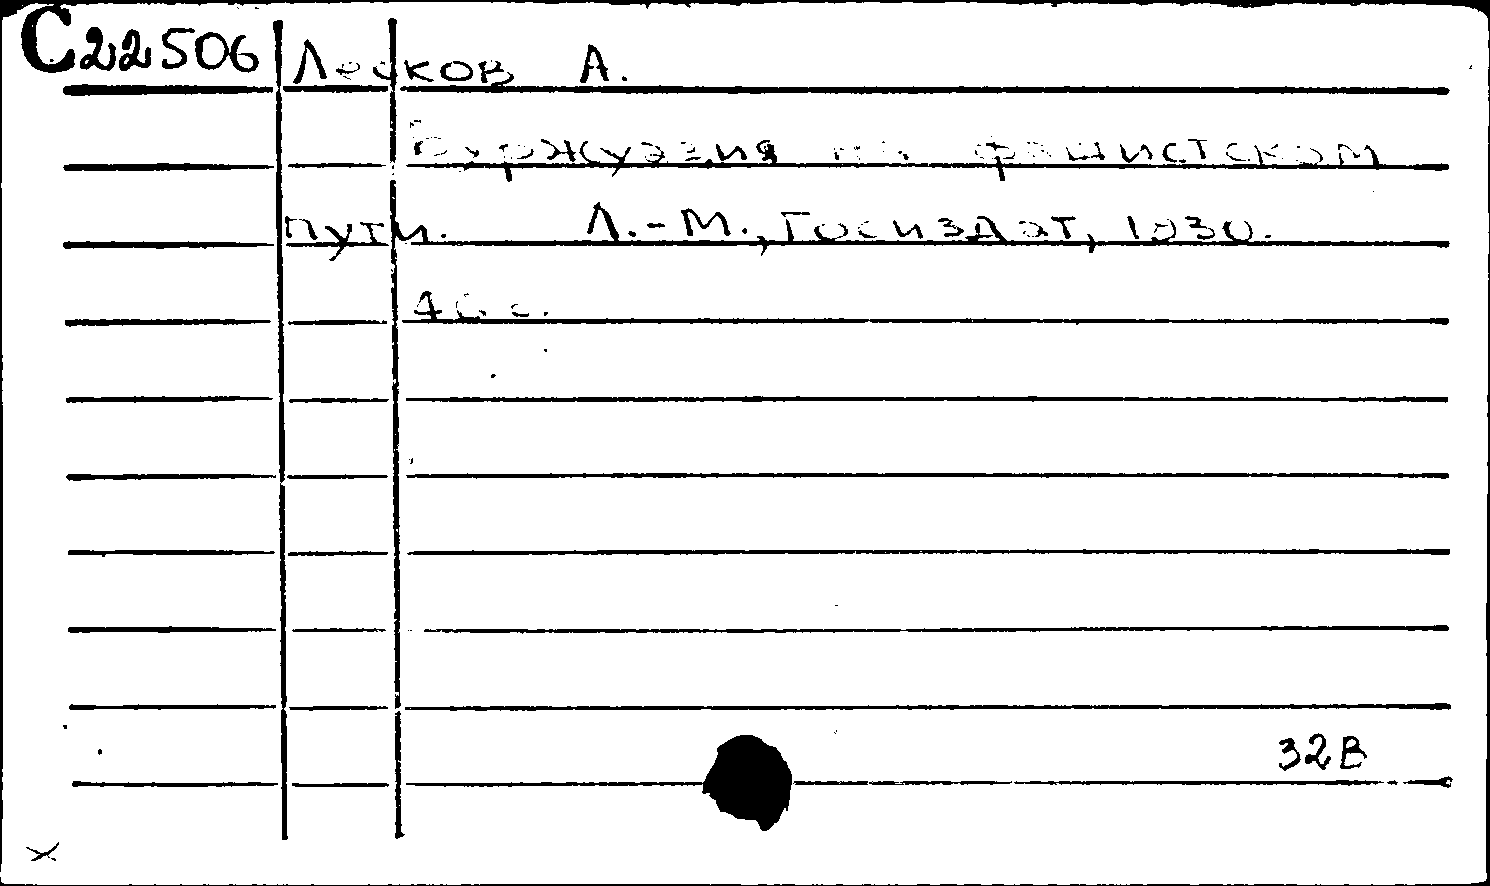 С22506 Лесков А.
Буржуазия на фашистском
пути. Л.-М., Госиздат, 1930.
46 с.
32В